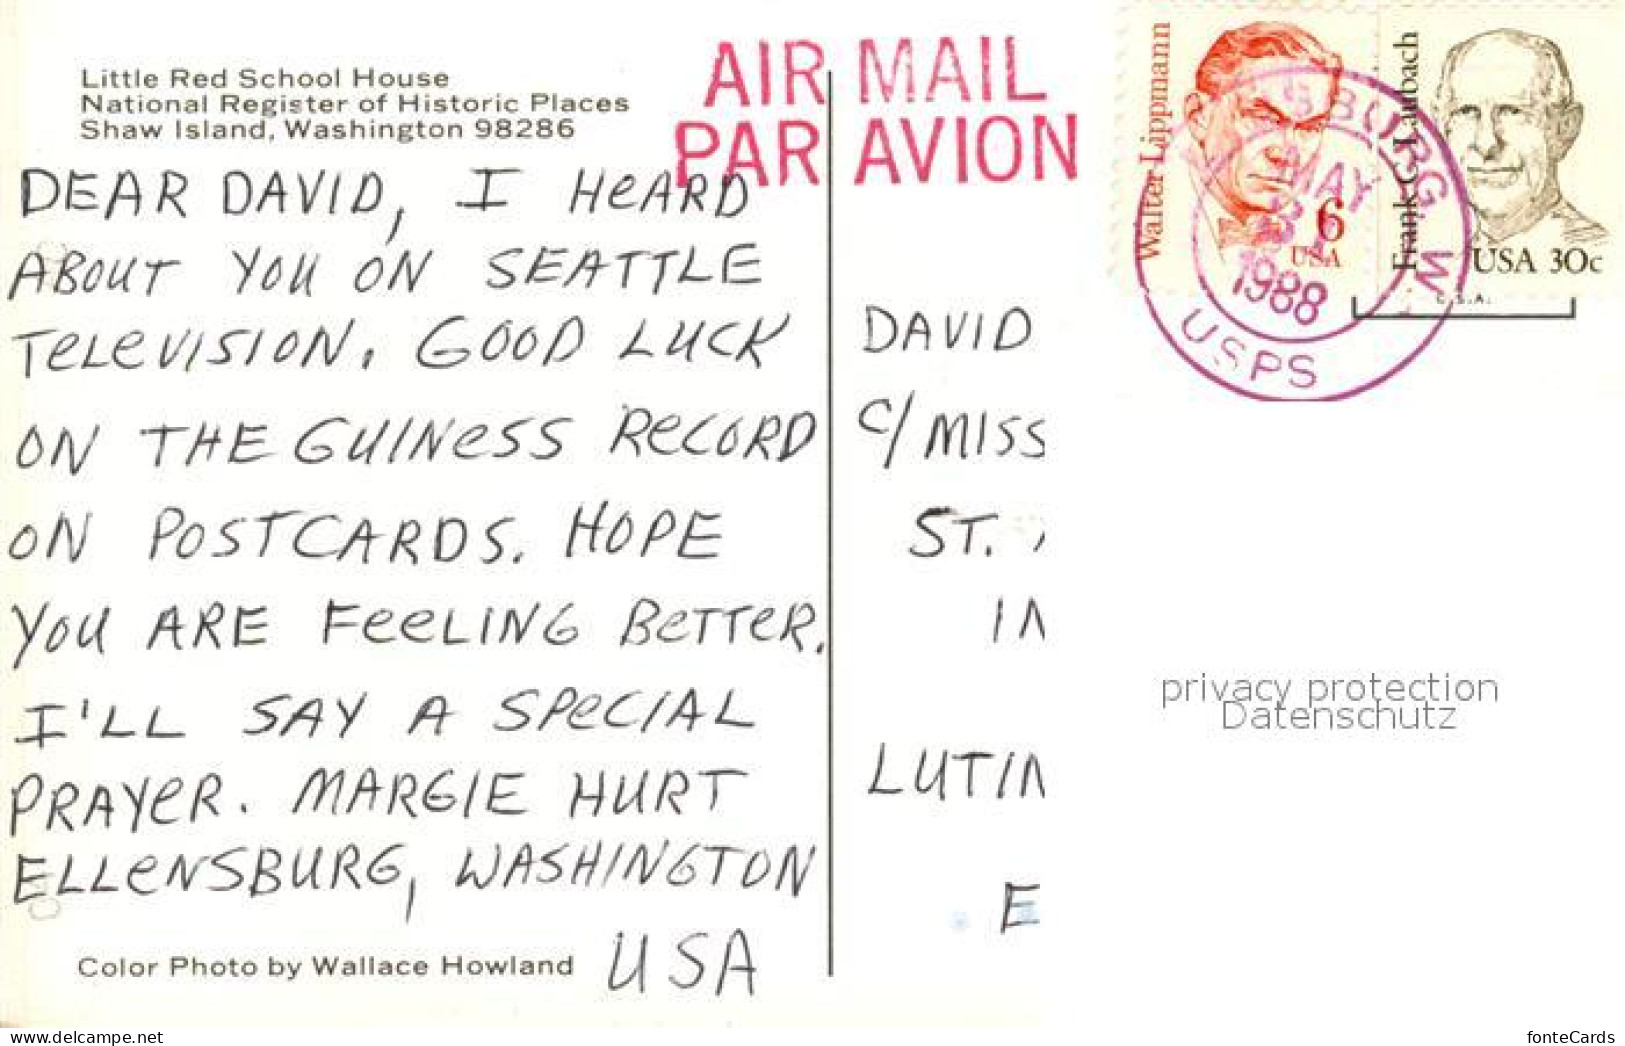 Little Red School House
National Register of Historic Places
Shaw Island, Washington 98286
AIR MAIL
PAR AVION
DEAR DAVID, I HeARD
ABOUT YOU ON SEATTLE
TeLeVISION. GOOD LUCK
ON THE GUINeSS ReCORD
ON POSTCARDS. HOPE
YOU ARE FeeLING BeTTeR.
I'LL SAY A SPeCIAL
PRAYeR. MARGIE HURT
ELLeNSBURG, WASHINGTON
USA
Color Photo by Wallace Howland
Walter Lippmann
6
USA
Frank C. Laubach
USA 30c
C.S.A.
SBURG W
MAY
1988
USPS
DAVID
C/MISS
ST.
LUTIN
E
privacy protection
Datenschutz
www.delcampe.net
fonteCards